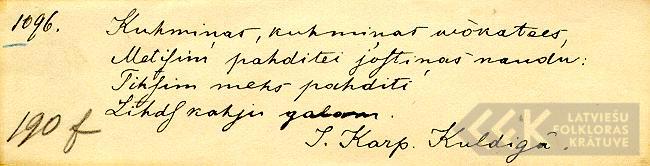 1096.
Kuhminas, kuhminas wokatees,
Metisim pahditei jostinas naudu:
Tihsim mehs pahditi
Lihds kahju galam.
190 f
J. Karp. Kuldigā.
LATVIEŠU
FOLKLORAS
KRĀTUVE